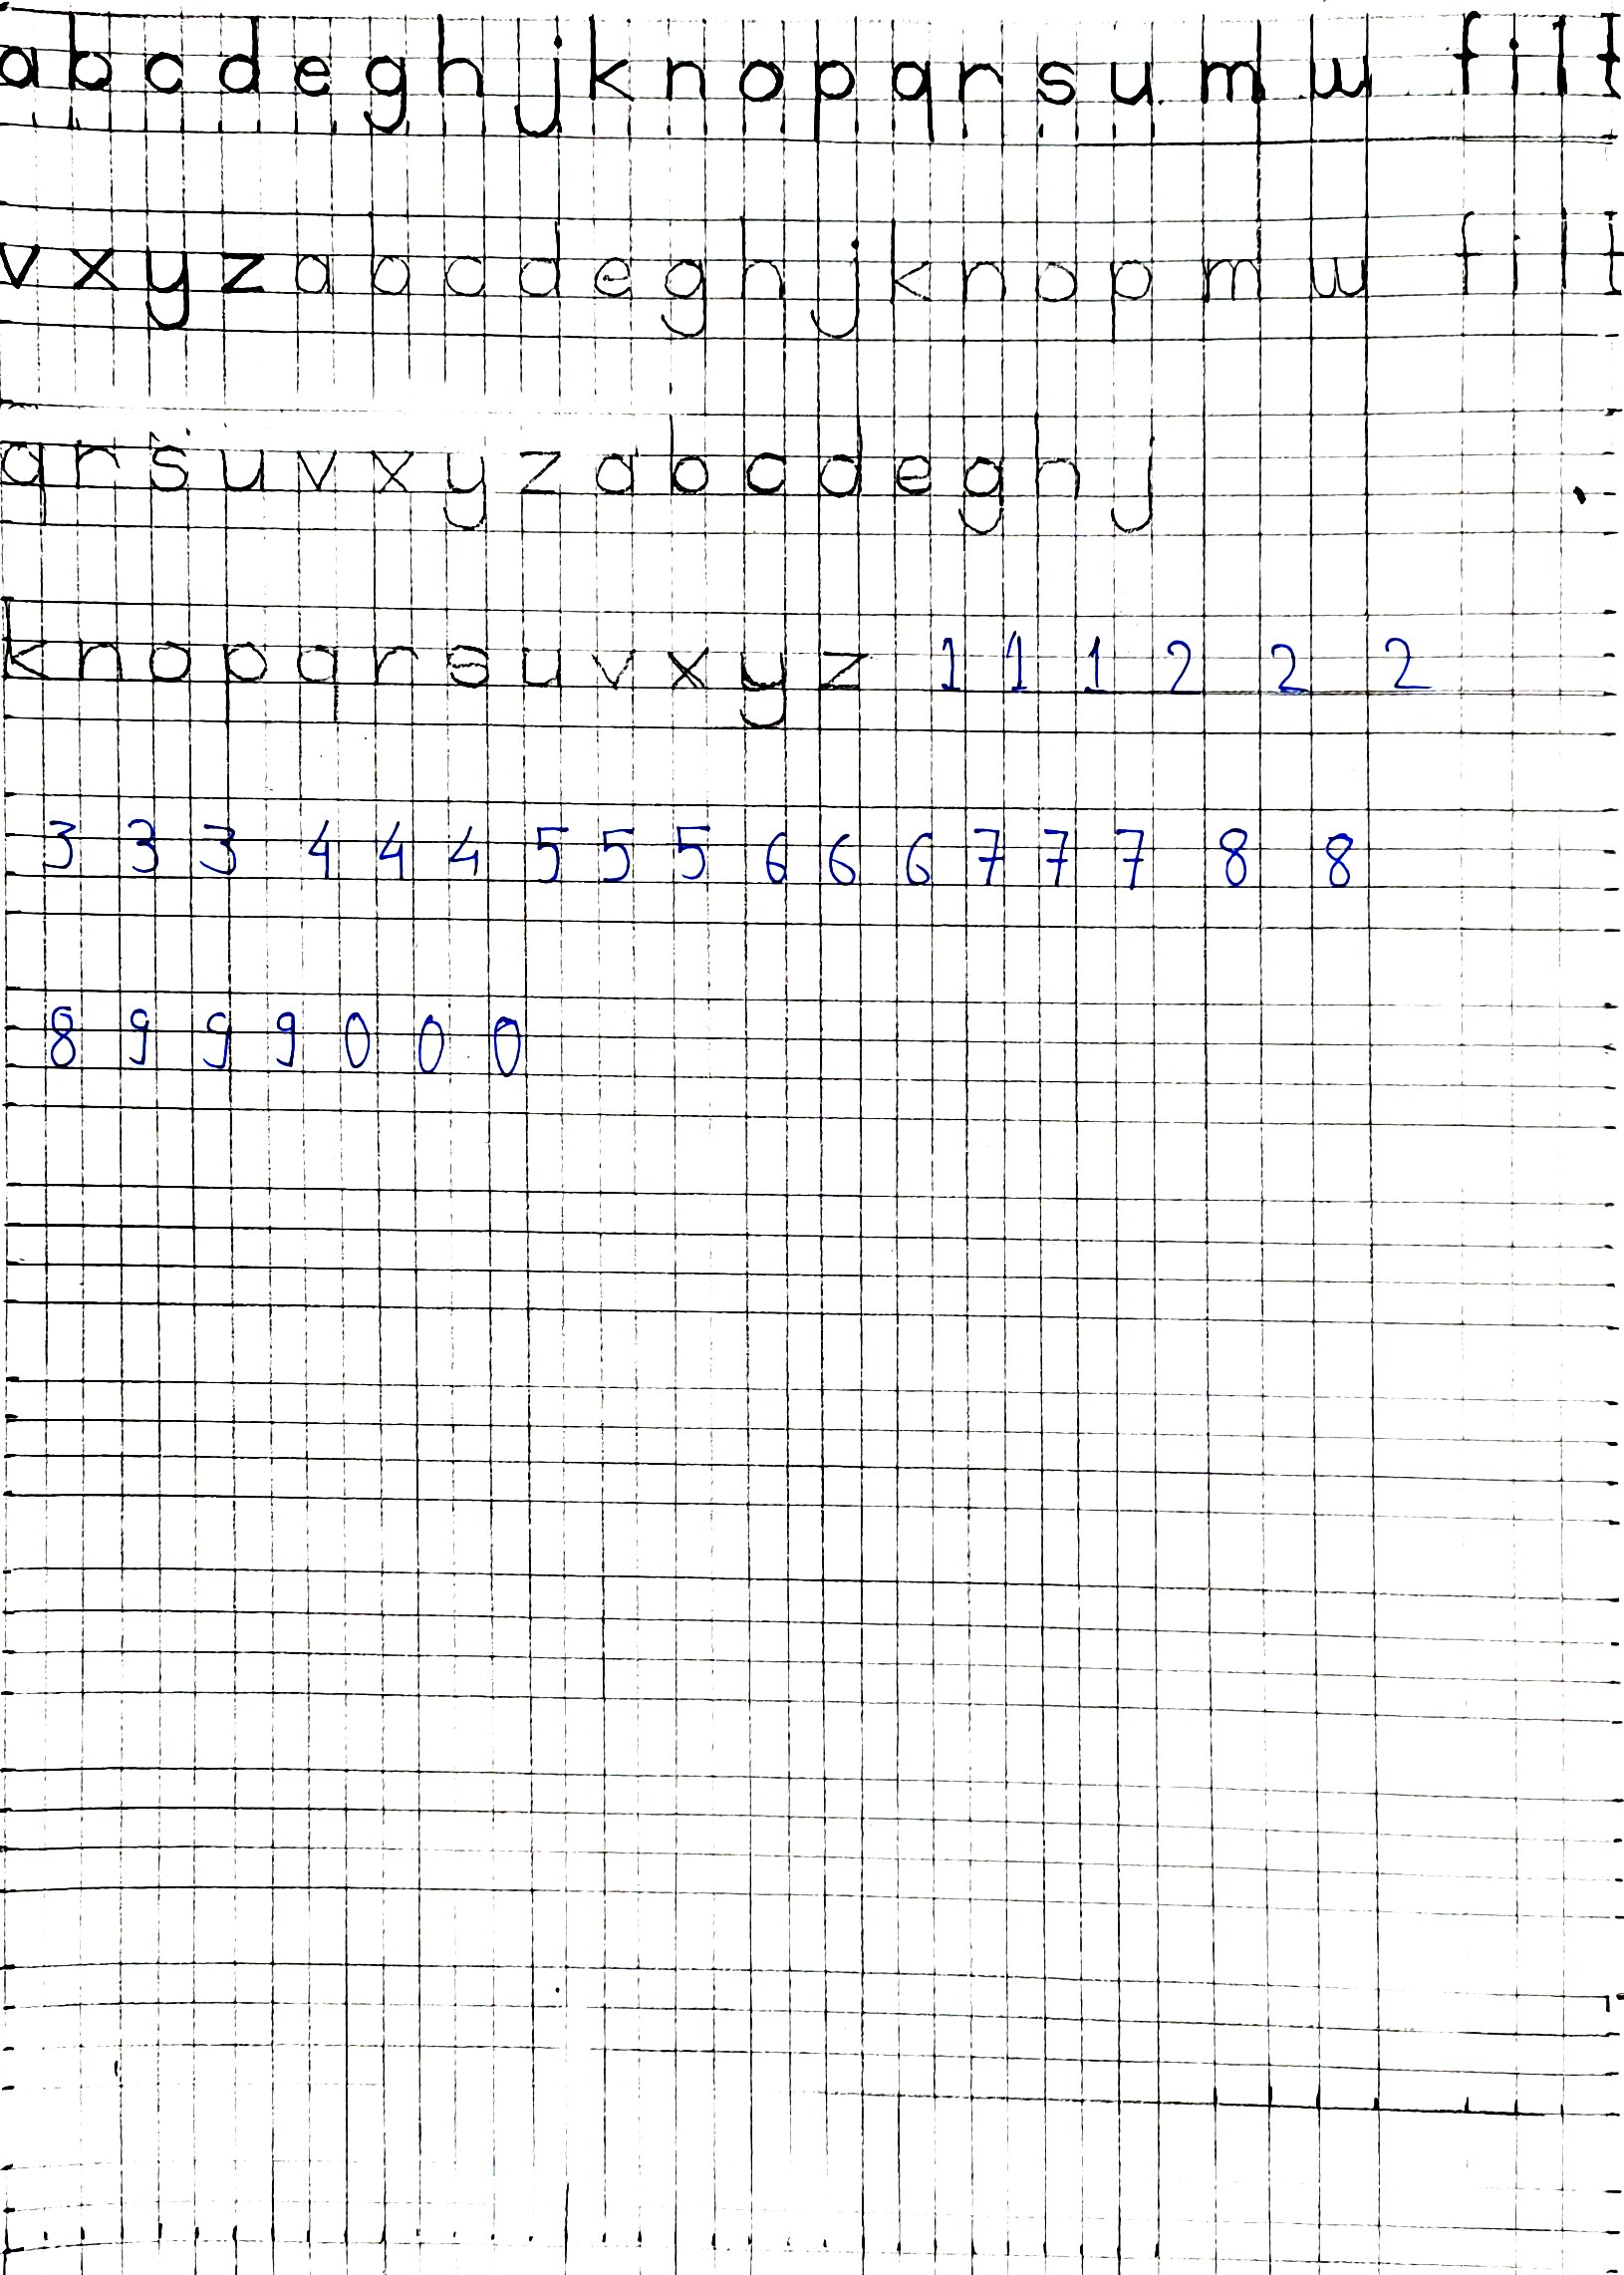 a b c d e g h j k n o p q r s u m w f i l t
v x y z a b c d e g h j k n o p m w f i l t
q r s u v x y z a b c d e g h j
k n o p q r s u v x y z 1 1 1 2 2 2
3 3 3 4 4 4 5 5 5 6 6 6 7 7 7 8 8
8 9 9 9 0 0 0